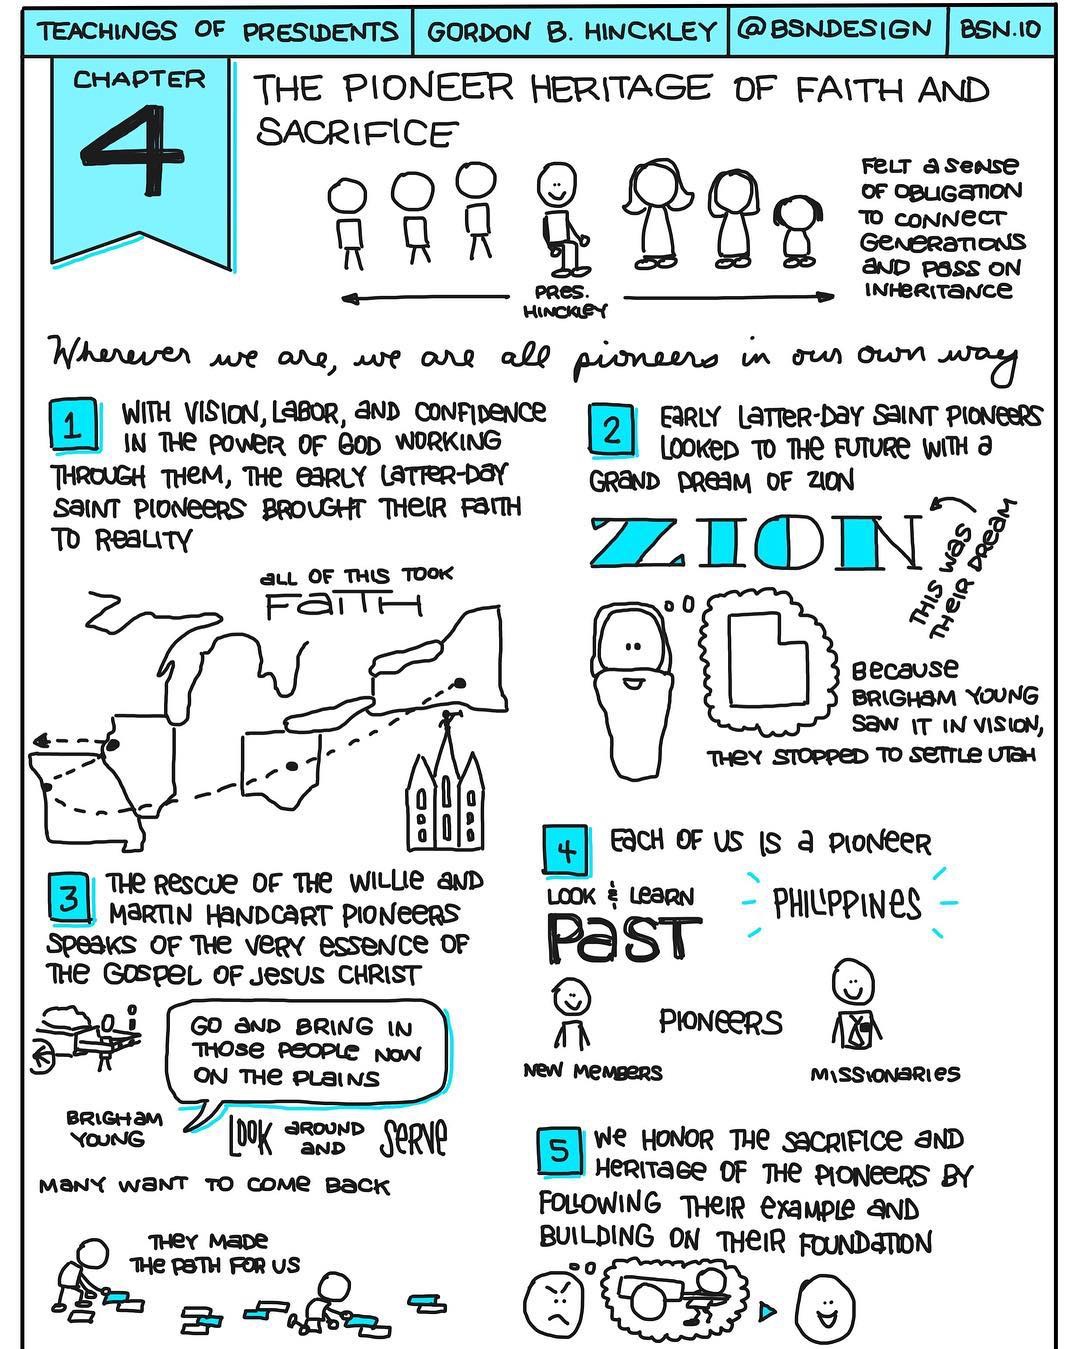 TEACHINGS OF PRESIDENTS
GORDON B. HINCKLEY
@BSNDESIGN
BSN.IO
CHAPTER
4
THE PIONEER HERITAGE OF FAITH AND
SACRIFICE
FELT A SENSE
OF OBLIGATION
TO CONNECT
GENERATIONS
AND PASS ON
INHERITANCE
PRES.
HINCKLEY
Wherever we are, we are all pioneers in our own way
1
WITH VISION, LABOR, AND CONFIDENCE
IN THE POWER OF GOD WORKING
THROUGH THEM, THE EARLY LATTER-DAY
SAINT PIONEERS BROUGHT THEIR FAITH
TO REALITY
ALL OF THIS TOOK
FAITH
2
EARLY LATTER-DAY SAINT PIONEERS
LOOKED TO THE FUTURE WITH A
GRAND DREAM OF ZION
ZION
THIS WAS
THEIR DREAM
BECAUSE
BRIGHAM YOUNG
SAW IT IN VISION,
THEY STOPPED TO SETTLE UTAH
3
THE RESCUE OF THE WILLIE AND
MARTIN HANDCART PIONEERS
SPEAKS OF THE VERY ESSENCE OF
THE GOSPEL OF JESUS CHRIST
GO AND BRING IN
THOSE PEOPLE NOW
ON THE PLAINS
BRIGHAM
YOUNG
LOOK AROUND AND SERVE
MANY WANT TO COME BACK
THEY MADE
THE PATH FOR US
4
EACH OF US IS A PIONEER
LOOK & LEARN
PAST
PHILIPPINES
PIONEERS
NEW MEMBERS
MISSIONARIES
5
WE HONOR THE SACRIFICE AND
HERITAGE OF THE PIONEERS BY
FOLLOWING THEIR EXAMPLE AND
BUILDING ON THEIR FOUNDATION